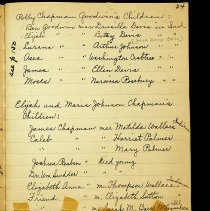 84
Polly Chapman Goodwin's Children:
Ben Goodwin mar Drusilla Davis
Elijah " Betsy Davis
Lurana " Arthur Johnson
Asea " Washington Crabtree
James " Ellen Davis
Moses " Narcissa
Elijah and Maria Johnson Chapman's
Children:
James Chapman mar Matilda Wallace
Caleb " Harriet Palmer
" Mary Palmer
Joshua Ruben died young
Elizabeth Anna " m. Thompson Wallace
Friend m. Elizabeth Sutton